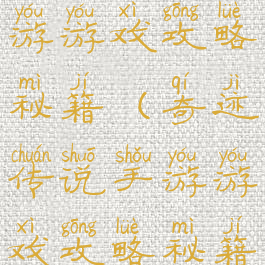 yóu yóu xì gōng luè
游游戏攻略
mì jí qí jì
秘籍(奇迹
chuán shuō shǒu yóu yóu
传说手游游
xì gōng luè mì jí
戏攻略秘籍